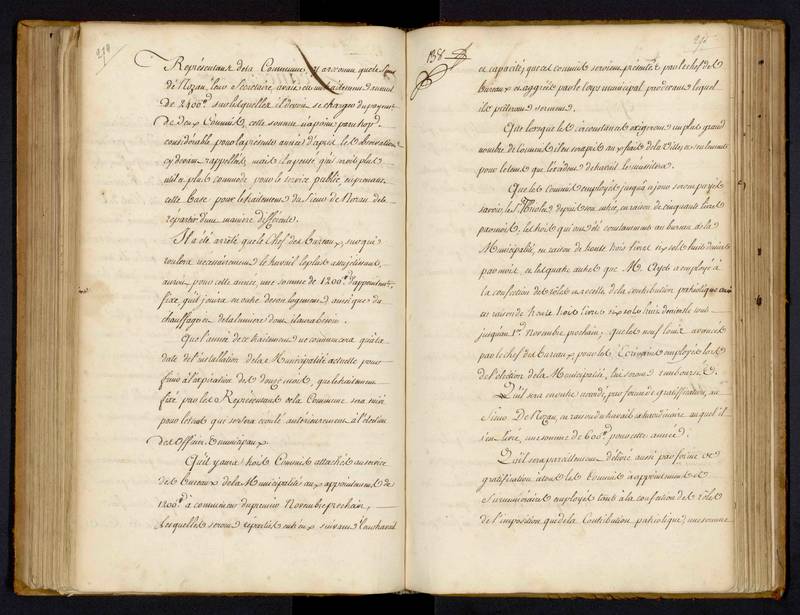 274
Représentans de la Commune, y a reconnu que le Sieur
de Nozan, leur Secrétaire, avoit eu un traitement annuel
de 2400# sur lesquelles il devoit se charger du payement
de deux Commis, cette somme n'a point paru trop
considérable pour la présente année d'après les observations
cy devant rappellées, mais il a pensé, qu'il seroit plus
utile, plus commode pour le service public, en prenant
cette base pour le traitement du Sieur de Nozan de le
repartir d'une manière différente.
Il a été arrêté que le Chef des Bureaux, sur qui
roulera nécessairement le travail le plus assujetissant,
auroit pour cette année, une somme de 1200# d'appointement
fixe, qu'il jouira en outre de son logement ainsi que du
chauffage et de la lumière dont il aura besoin.
Que l'année de ce traitement ne commencera qu'à la
date de l'installation de la Municipalité actuelle pour
finir à l'expiration des douze mois, que le traitement
fixé par les Représentans de la Commune sera suivi
pour le tems que sera écoulé antérieurement à l'élection
des Officiers Municipaux.
Qu'il y aura trois Commis attachés au service
des bureaux de la Municipalité aux appointemens de
1200# à commencer du premier Novembre prochain,
lesquelles seront réparties entr'eux suivant leur travail
138
275
et capacité; que ces commis seroient présentés par le chef des
bureaux et aggréés par le Corps municipal par devant lequel
ils prêteront serment.
Que lorsque les circonstances exigeront un plus grand
nombre de Commis il en sera pris aux frais de la Ville, et seulement
pour le tems que l'excédent de travail le nécessitera.
Que les commis employés jusqu'à ce jour seront payés
savoir, le S. Triolet depuis son entrée, en raison de cinquante livres
par mois, les trois qui ont été constamment au bureau de la
Municipalité, en raison de trente trois livres six sols huit deniers
par mois, et les quatre autres que M. Clyet a employé à
la confection des rôles et recette de la contribution patriotique aussi
en raison de trente trois livres six sols huit deniers le tout
jusqu'au 1er Novembre prochain; que les neuf louis avancés
par le chef des bureaux pour les Ecrivains employés lors
de l'élection de la Municipalité, lui seront remboursés.
Qu'il sera en outre accordé, par forme de gratification, au
Sieur De Nozan, en raison du travail extraordinaire auquel il
s'est livré, une somme de 600# pour cette année.
Qu'il sera pareillement délivré aussi par forme de
gratification à tous les Commis à appointement et
Surnuméraires employés tant à la confection des rôles
de l'imposition que de la Contribution patriotique, une somme